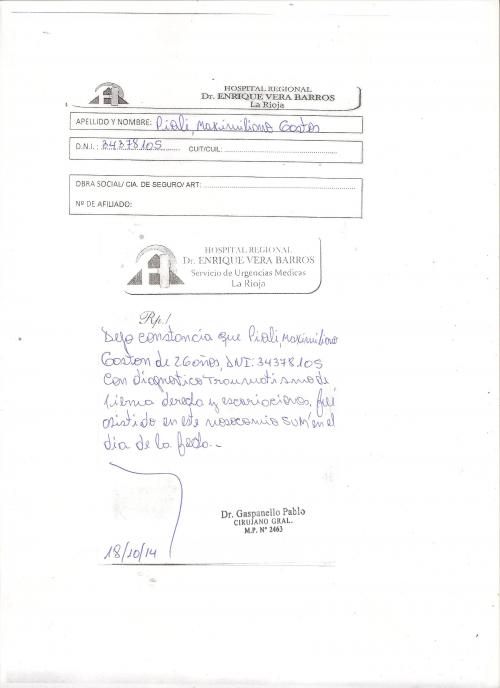 HOSPITAL REGIONAL
Dr. ENRIQUE VERA BARROS
La Rioja
APELLIDO Y NOMBRE: Pioli, Maximiliano Gaston
D.N.I.: 34378105 CUIT/CUIL:
OBRA SOCIAL/ CIA. DE SEGURO/ ART:
Nº DE AFILIADO:
HOSPITAL REGIONAL
Dr. ENRIQUE VERA BARROS
Servicio de Urgencias Medicas
La Rioja
Rp./
Dejo constancia que Pioli, Maximiliano
Gaston de 26 años, DNI: 34378105
con diagnostico Traumatismo de
Pierna derecha y escoriaciones, fué
asistido en este nosocomio SUM en el
día de la fecha.-
18/10/14
Dr. Gaspanello Pablo
CIRUJANO GRAL.
M.P. Nº 2463